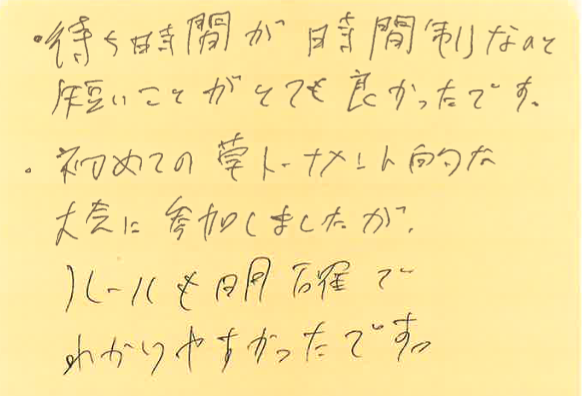 ・待ち時間が時間制なのと
短いことがとても良かったです。
・初めての草トーナメント的な
大会に参加しましたが、
ルールも明確で
わかりやすかったです。